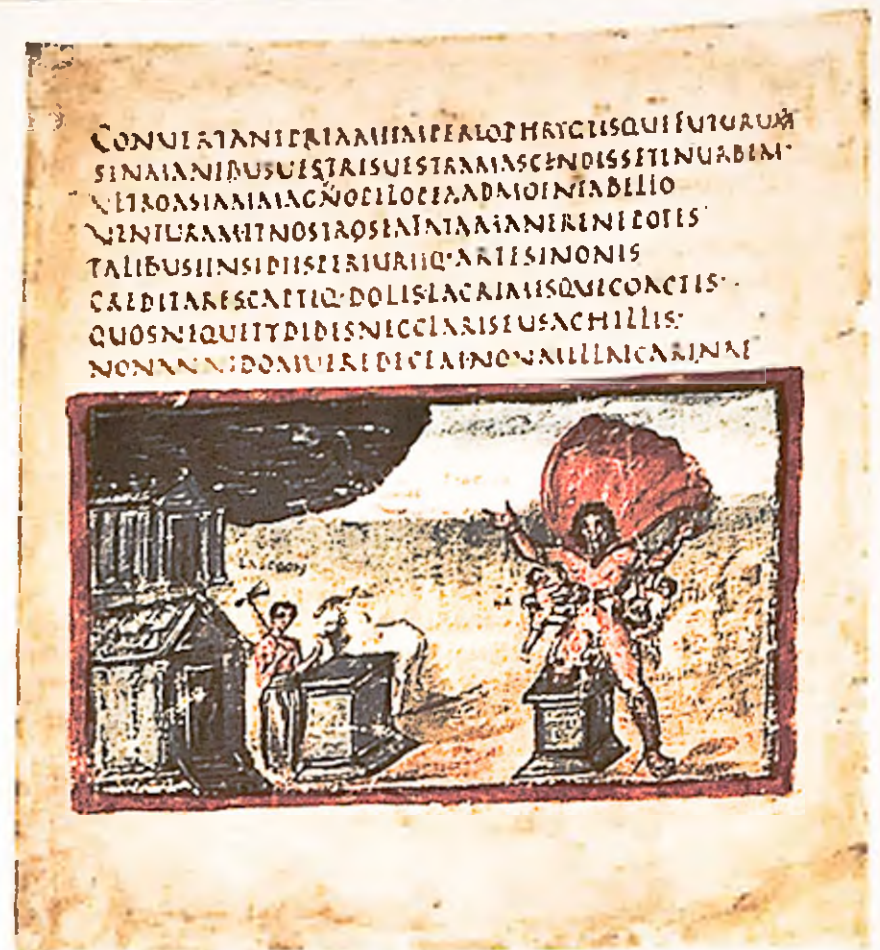 CONUERTANTPRIAMIIMPERIOPHRYGIISQUEFUTURUM
SINMANIBUSUESTRISUESTRAMASCENDISSETINURBEM·
ULTROASIAMMAGNOPELOPEAADMOENIABELLO
UENTURAMETNOSTROSEAFATAMANERENEPOTES
TALIBUSINSIDIISPERIURIIQ·ARTESINONIS
CREDITARESCAPTIQ·DOLISLACRIMISQUECOACTIS·
QUOSNEQUETYDIDESNECCLARISEUSACHILLIS·
NONANNIDOMUEREDECEMNONMILLECARINAE
LAOCOON